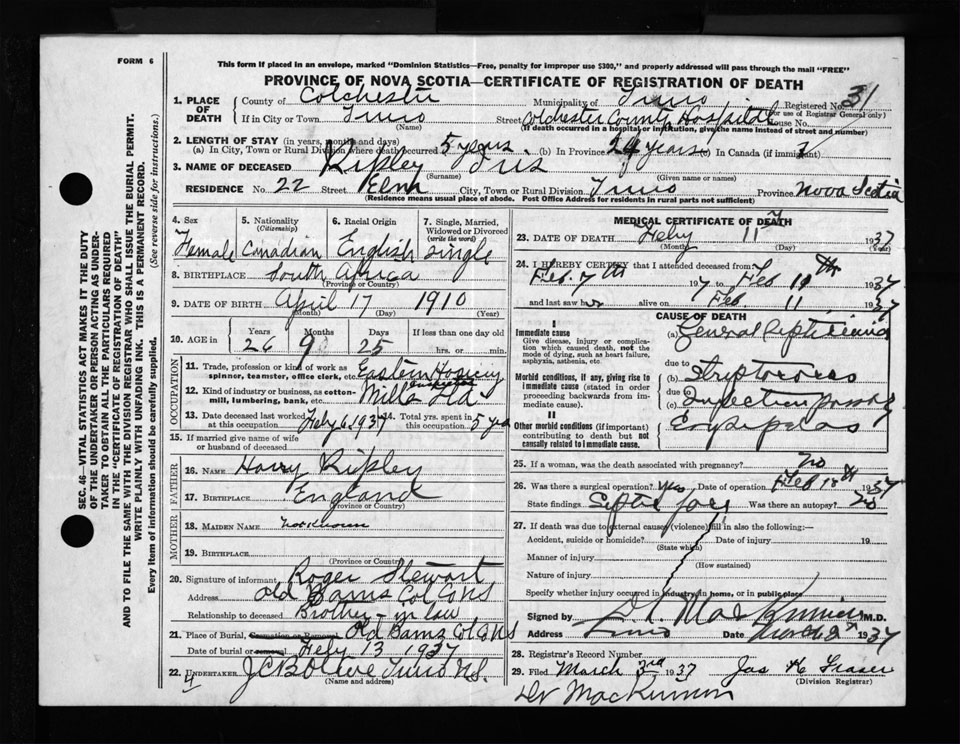 FORM 6
This form if placed in an envelope, marked "Dominion Statistics—Free, penalty for improper use $300," and properly addressed will pass through the mail "FREE"
PROVINCE OF NOVA SCOTIA—CERTIFICATE OF REGISTRATION OF DEATH
1. PLACE OF DEATH County of Colchester Municipality of Truro Registered No. 31
(For use of Registrar General only)
If in City or Town Truro Street Colchester County Hospital House No.
(Name) (If death occurred in a hospital or institution, give the name instead of street and number)
2. LENGTH OF STAY (in years, months and days)
(a) In City, Town or Rural Division where death occurred 5 years (b) In Province 24 years (c) In Canada (if immigrant)
3. NAME OF DECEASED Ripley Iris
(Surname) (Given name or names)
RESIDENCE No. 22 Street Elm City, Town or Rural Division Truro Province Nova Scotia
(Residence means usual place of abode. Post Office Address for residents in rural parts not sufficient)
4. Sex Female
5. Nationality (Citizenship) Canadian
6. Racial Origin English
7. Single, Married, Widowed or Divorced (write the word) Single
8. BIRTHPLACE South Africa
(Province or Country)
9. DATE OF BIRTH April 17 1910
(Month) (Day) (Year)
10. AGE in Years 26 Months 9 Days 25 If less than one day old hrs. or min.
OCCUPATION
11. Trade, profession or kind of work as spinner, teamster, office clerk, etc. Eastern Hosiery
12. Kind of industry or business, as cotton-mill, lumbering, bank, etc. Mills Ltd
13. Date deceased last worked at this occupation Feby 6 1937 14. Total yrs. spent in this occupation 5 yrs
15. If married give name of wife or husband of deceased
FATHER
16. NAME Harry Ripley
17. BIRTHPLACE England
(Province or Country)
MOTHER
18. MAIDEN NAME
19. BIRTHPLACE
(Province or Country)
20. Signature of informant Roger Stewart
Address Old Barns Col Co NS
Relationship to deceased Brother-in law
21. Place of Burial, Cremation or Removal Old Barns Col Co NS
Date of burial or removal Feby 13 1937
22. UNDERTAKER Truro NS.
(Name and address)
4
MEDICAL CERTIFICATE OF DEATH
23. DATE OF DEATH Feby 11 1937
(Month) (Day)
24. I HEREBY CERTIFY that I attended deceased from
Feb. 7th 1937 to Feb 11th 1937
and last saw her alive on Feb 11 1937
CAUSE OF DEATH
I
Immediate cause
Give disease, injury or complication which caused death, not the mode of dying, such as heart failure, asphyxia, asthenia, etc.
(a) General Septicemia
due to
Morbid conditions, if any, giving rise to immediate cause (stated in order proceeding backwards from immediate cause)
(b) Streptococcus
due to
(c) Infection
II
Other morbid conditions (if important) contributing to death but not causally related to immediate cause.
Erysipelas
25. If a woman, was the death associated with pregnancy? no
26. Was there a surgical operation? yes Date of operation Feb 1937
State findings Was there an autopsy? no
27. If death was due to external causes (violence) fill in also the following:—
Accident, suicide or homicide? Date of injury 19
(State which)
Manner of injury
(How sustained)
Nature of injury
Specify whether injury occurred in industry, in home, or in public place
Signed by MacKinnon M.D.
Address Truro Date March 2 1937
28. Registrar's Record Number
29. Filed March 3rd 1937 Jas K Fraser
(Division Registrar)
Dr MacKinnon
SEC. 46—VITAL STATISTICS ACT MAKES IT THE DUTY
OF THE UNDERTAKER OR PERSON ACTING AS UNDER-
TAKER TO OBTAIN ALL THE PARTICULARS REQUIRED
IN THE "CERTIFICATE OF REGISTRATION OF DEATH"
AND TO FILE THE SAME WITH THE DIVISION REGISTRAR WHO SHALL ISSUE THE BURIAL PERMIT.
WRITE PLAINLY WITH UNFADING INK. THIS IS A PERMANENT RECORD.
Every item of information should be carefully supplied. (See reverse side for instructions.)